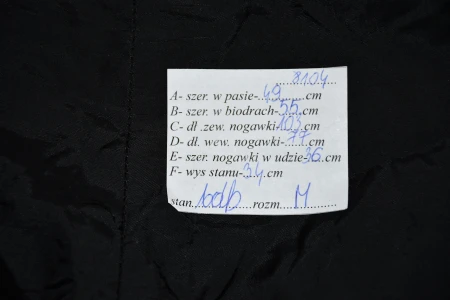 8104
A- szer. w pasie-.49.........cm
B- szer. w biodrach-.55...cm
C- dł .zew. nogawki-103.cm
D- dł. wew. nogawki-..77...cm
E- szer. nogawki w udzie-36.cm
F- wys stanu-.34.cm
stan bdb rozm. M